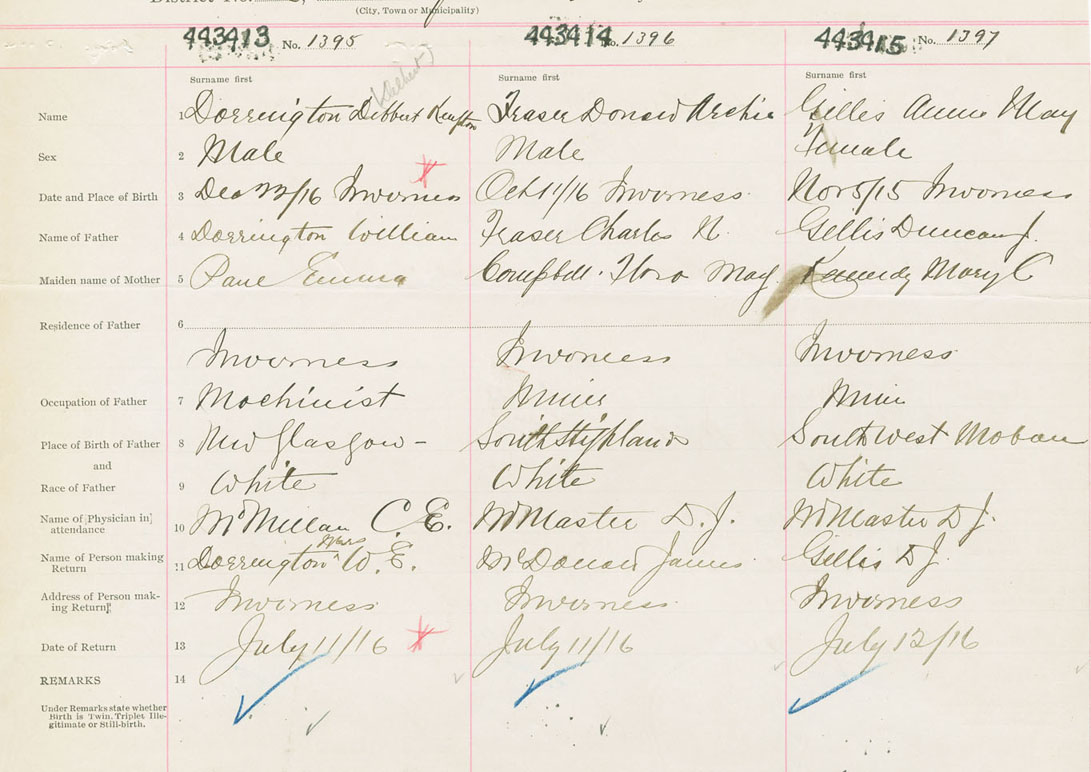 District No.
(City, Town or Municipality)
443413 No. 1395 443414 No. 1396 443415 No. 1397
Surname first Surname first Surname first
(Delbert)
Name 1 Dorrington Debbert Fraser Donald Archie Gillis Annie May
Sex 2 Male Male Female
Date and Place of Birth 3 Dec 23/16 Inverness Oct 11/16 Inverness Nov 5/15 Inverness
Name of Father 4 Dorrington William Fraser Charles N. Gillis Duncan J.
Maiden name of Mother 5 Emma Campbell Flora May Kennedy Mary C
Residence of Father 6
Inverness Inverness Inverness
Occupation of Father 7 Machinist Miner Miner
Place of Birth of Father 8 New Glasgow – South Highlands South West Mabou
and
Race of Father 9 White White White
Name of [Physician in] attendance 10 McMillan C. E. McMaster D. J. McMaster D J.
Mrs
Name of Person making Return 11 Dorrington ^ W. E. McDonald James Gillis D J.
Address of Person making Return 12 Inverness Inverness Inverness
Date of Return 13 July 11/16 July 11/16 July 12/16
REMARKS 14
Under Remarks state whether
Birth is Twin, Triplet Ille-
gitimate or Still-birth.